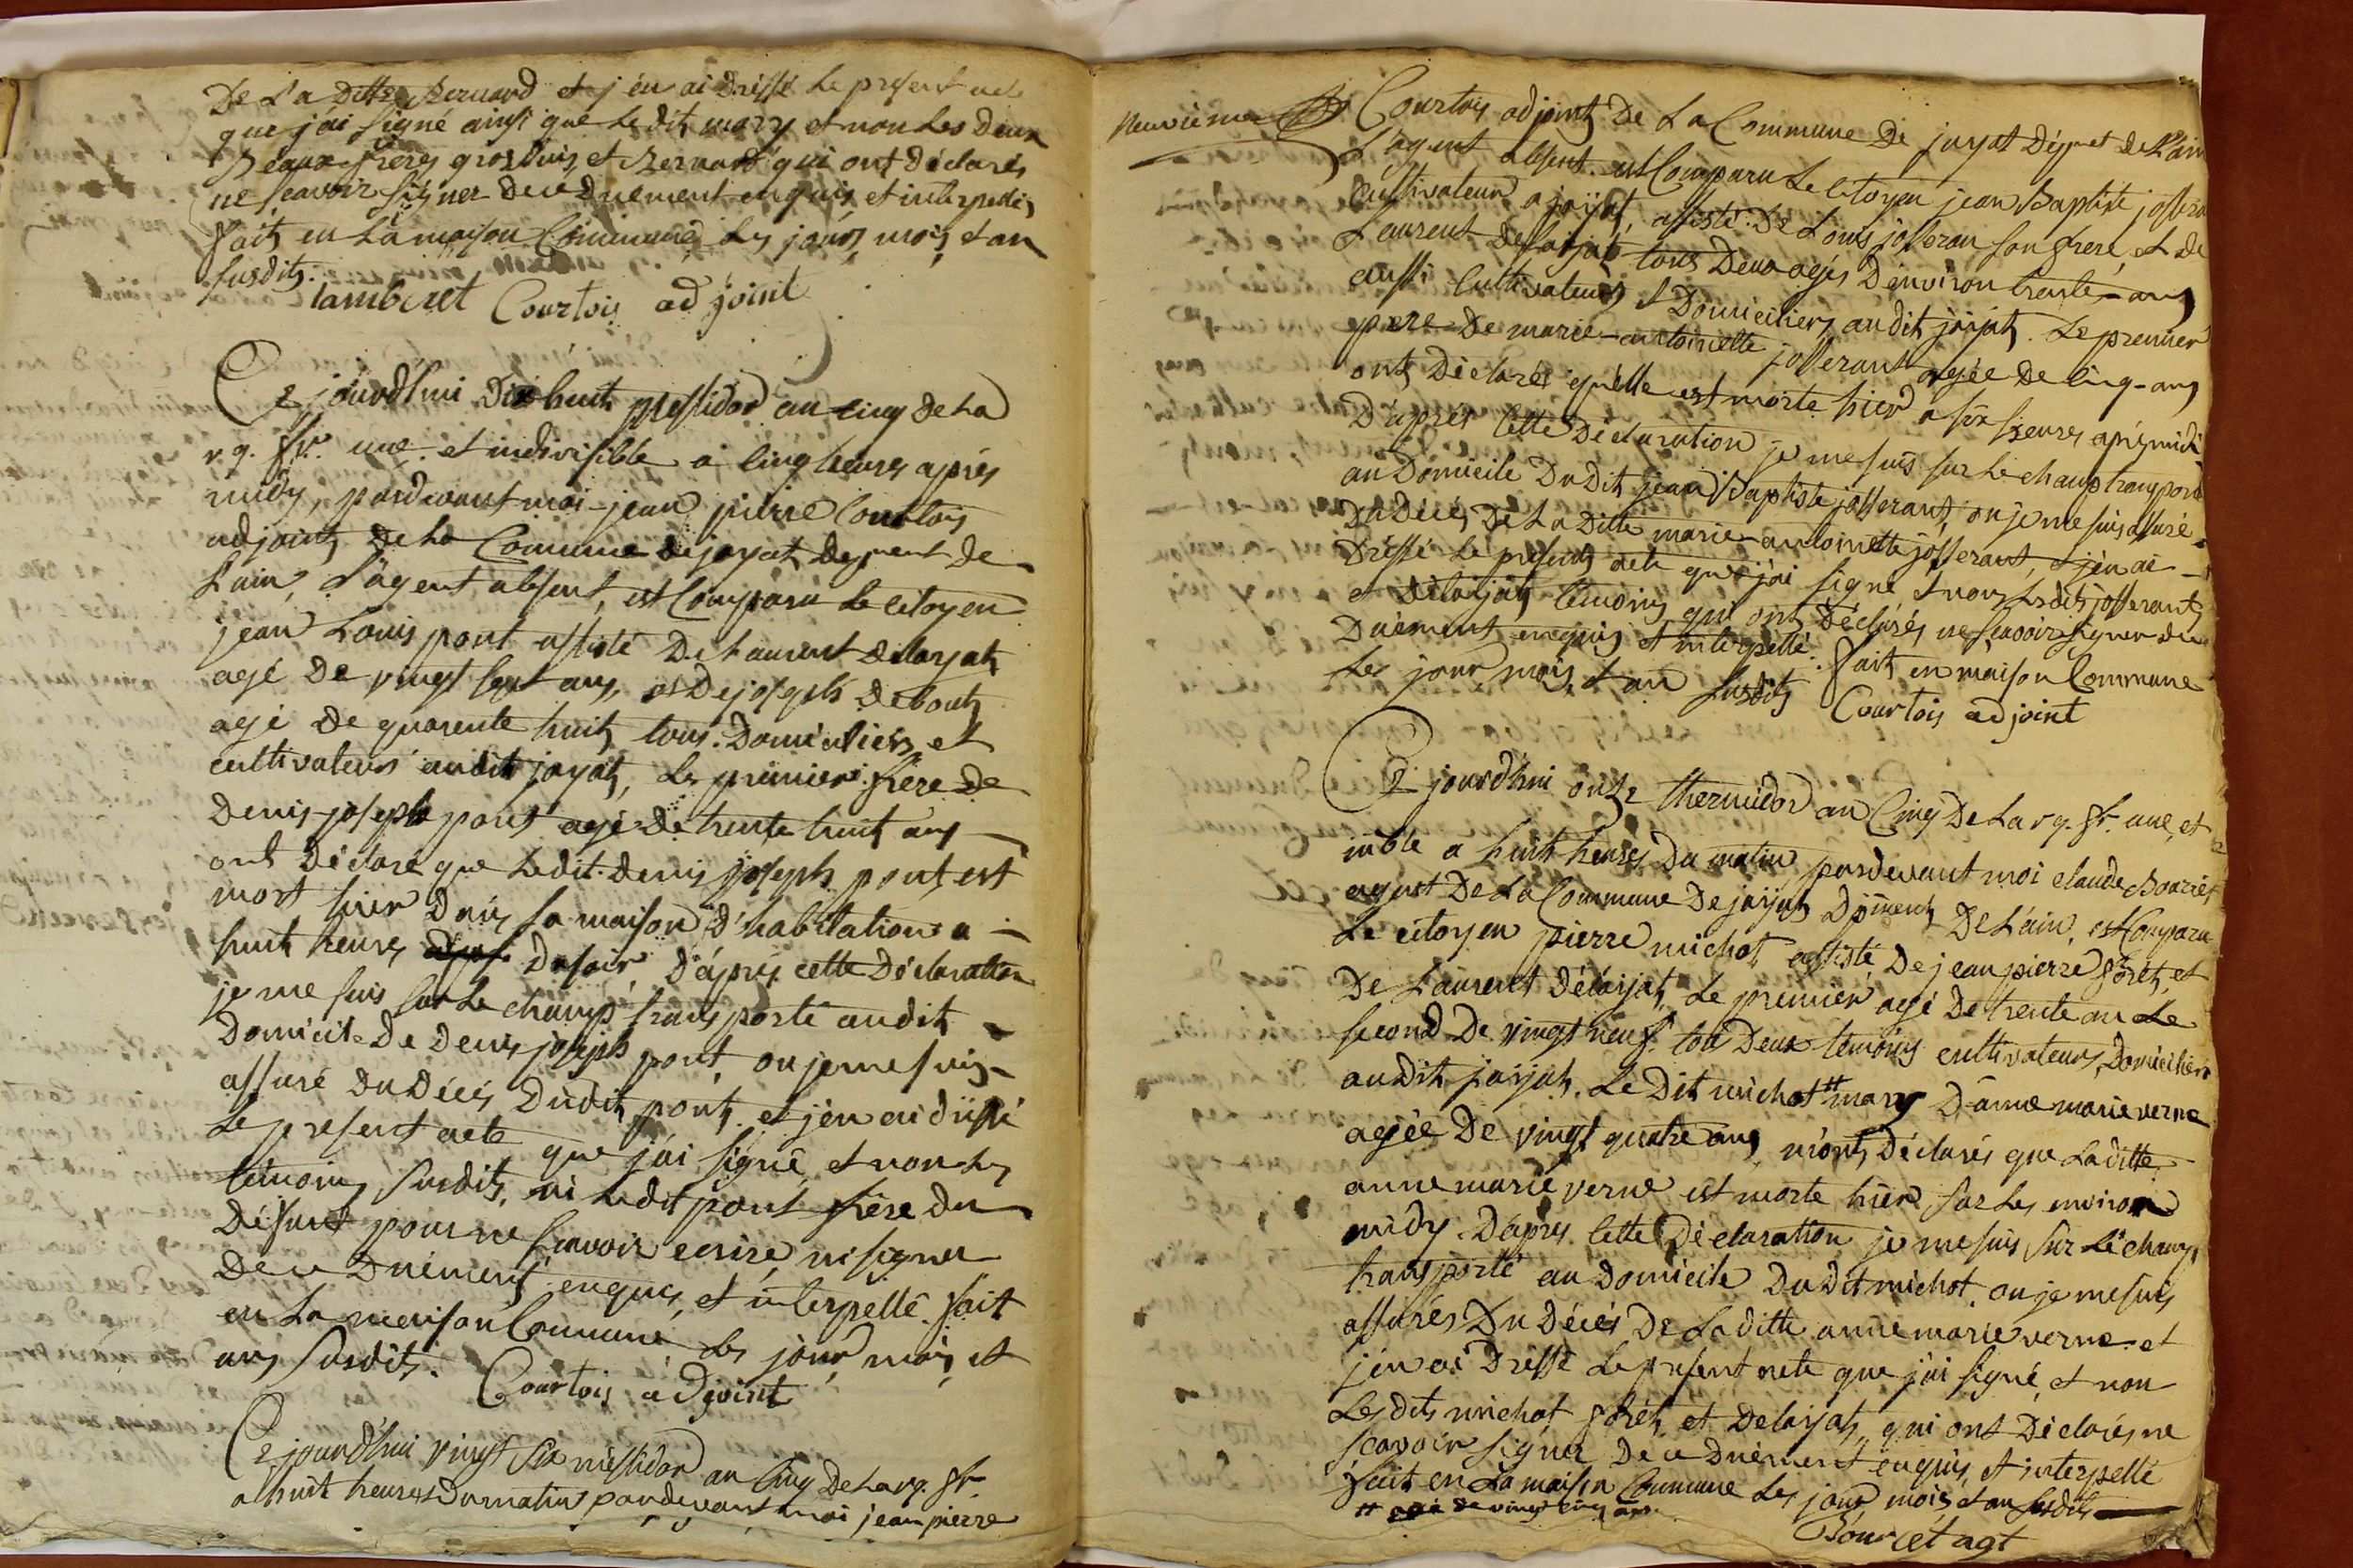 De La Ditte Bernard et j'en ai Dressé Le present acte
que j'ai signé ainsi que Ledit mary et non Les Deux
Beaux freres grosluis et Bernard qui ont Déclarés
ne scavoir signer de ce Duement enquis et interpellés
fait en La maison Commune Les jour, mois, et an
susdits.
lambert Courtois adjoint
Ce jourd'hui Dix huit messidor an cinq de La
r. q. fr. une et indivisible a cinq heures après
midy, pardevant moi jean pierre Courtois
adjoint de La Commune de jayat depment de
L'ain, L'agent absent, est Comparu Le citoyen
jean Louis pont assisté De Laurent delayat
agé De vingt sept ans, et De joseph debout
agé de quarente huit tous Domiciliés et
cultivateurs audit jayat, Le premier frere de
Denis joseph pont agé de trente huit ans
ont Déclaré que Ledit denis joseph pont est
mort hier Dans sa maison d'habitation a
huit heures Du soir D'après cette Déclaration
je me suis sur Le champ transporté audit
Domicile De Denis joseph pont, ou je me suis
assuré Du Décès Dudit pont et j'en ai dressé
Le present acte que j'ai signé et non Les
temoins susdits, ni Ledit pont frère du
Défunt pour ne scavoir ecrire, ni signer
De ce Duement enquis, et interpellé. fait
en La maison Commune Les jour, mois, et
ans susdits. Courtois adjoint
Ce jourd'hui vingt six messidor an cinq De La r. q. fr.
a huit heures du matin pardevant moi jean pierre
neuvieme Courtois adjoint De La Commune De jayat Dépmet de L'ain
L'agent absent. est Comparu Le citoyen jean Baptiste josseran
cultivateur a jayat, assisté De Louis josseran son frere, et de
Laurent delayat tous Deux agés D'environ trente ans
aussi cultivateurs et Domiciliers audit jayat. Le premier
pere De marie-antoinette josserant agée De cinq-ans
ont Déclarés qu'elle est morte hier a six heures après midi
D'après cette Déclaration je me suis sur Le champ transporté
au Domicile Dudit jean Baptiste josserant, ou je me suis assuré
Du Décés De La Ditte marie-antoinette josserant, et j'en ai
Dressé Le present acte que j'ai signé et non Lesdits josserants
et delayat temoins qui ont Déclarés ne scavoir signer de ce
Duement enquis et interpellé. fait en maison Commune
Les jour mois, et an susdits Courtois adjoint
Ce jourd'hui onze thermidor an Cinq De La r. q. fr. une, et
inible a huit heures Du matin pardevant moi claude Bourcet
agent De La Commune De jayat Dpment De L'ain, est Comparu
Le citoyen pierre michot assisté De jean pierre forêt, et
De Laurent délayat, Le premier agé De trente an Le
second De vingt neuf. tous Deux temoins cultivateurs, Domiciliers
audit jayat. Le Dit michot # mary D'anne marie verne
agée De vingt quatre ans, m'ont Déclarés que Laditte
anne marie verne est morte hier sur Les environ
midy. D'après cette Déclaration je me suis sur Le champ
transporté au Domicile Du Dit michot, ou je me suis
assurés Du Décés De Laditte anne marie verne et
j'en ai Dressé Le present acte que j'ai signé, et non
Lesdits michot forêt, et Delayat, qui ont Déclarés ne
scavoir signer De ce Duement enquis, et interpellé
fait en La maison Commune Les jour mois et an susdits
# agé de vingt cinq ans.
Bourcet agt